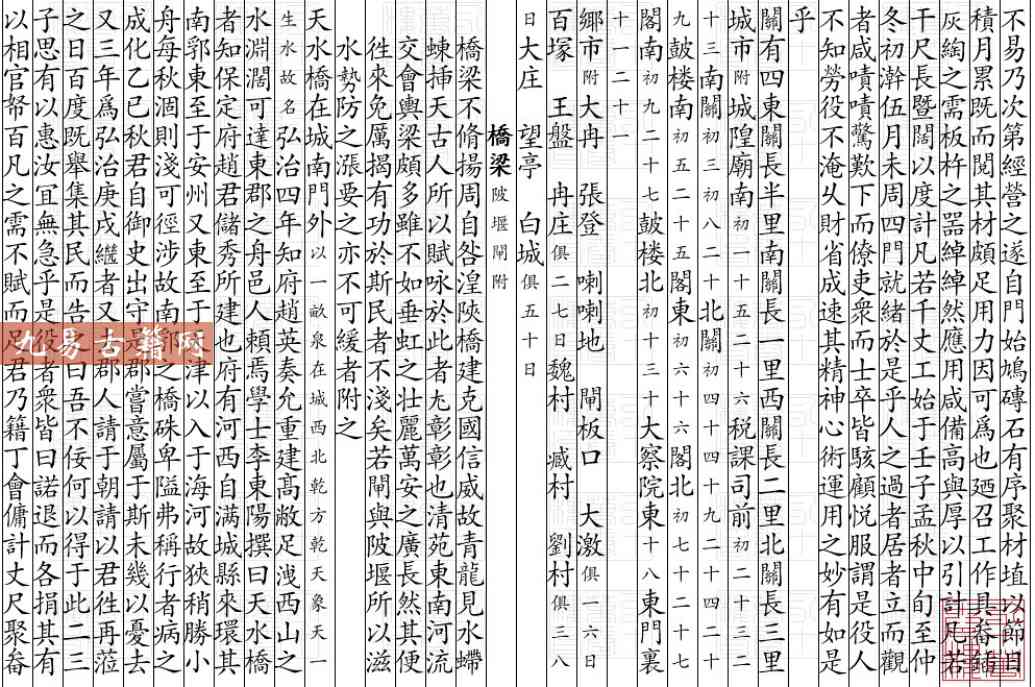 不易乃次第經營之遂自門始鳩磚石有序聚材埴以節日
積月累既而閱其材頗足用力因可爲也廼召工作具畚鍤
灰綯之需板杵之器綽綽然應用咸備高與厚以引計凡若
干尺長暨闊以度計凡若干丈工始于壬子孟秋中旬至仲
冬初澣伍月未周四門就緒於是乎人之過者居者立而觀
者咸嘖嘖驚歎下而僚吏衆而士卒皆駭顧悦服謂是役人
不知勞役不淹久財省成速其精神心術運用之妙有如是
乎
關有四東關長半里南關長一里西關長二里北關長三里
城市附城隍廟南初一十五二十六税課司前初二十三二
十三南關初三初八二十北關初四十四十九二十四二十
九鼓楼南初五二十五閣東初六十六閣北初七十二二十七
閣南初九二十七鼓楼北初十三十大察院東十八東門裏
十一二十一
鄉市附大冉 張登 喇喇地 閘板口 大激俱一六日
百塚 王盤 冉庄俱二七日魏村 臧村 劉村俱三八
日大庄 望亭 白城俱五十日
橋梁陂堰閘附
橋梁不脩揚周自咎湟陝橋建克國信威故青龍見水蝃
蝀挿天古人所以賦咏於此者尤彰彰也清苑東南河流
交會輿梁頗多雖不如垂虹之壮麗萬安之廣長然其便
徃來免厲揭有功於斯民者不淺矣若閘與陂堰所以滋
水勢防之漲要之亦不可緩者附之
天水橋在城南門外以一畝泉在城西北乾方乾天象天一
生水故名弘治四年知府趙英奏允重建髙敝足洩西山之
水淵濶可達東郡之舟邑人頼焉學士李東陽撰曰天水橋
者知保定府趙君儲秀所建也府有河西自满城縣來環其
南郛東至于安州又東至于津以入于海河故狹稍勝小
舟毎秋涸則淺可徑涉故南郛之橋硃卑隘弗稱行者病之
成化乙巳秋君自御史出守是郡嘗意屬于斯未幾以憂去
又三年爲弘治庚戌繼者又去郡人請于朝請以君徃再蒞
之日百度既舉集其民而告之曰吾不佞何以得于此二三
子思有以惠汝宜無急乎是役者衆皆曰諾退而各捐其有
以相官帑百凡之需不賦而足君乃籍丁會傭計丈尺聚畚
九易古籍网